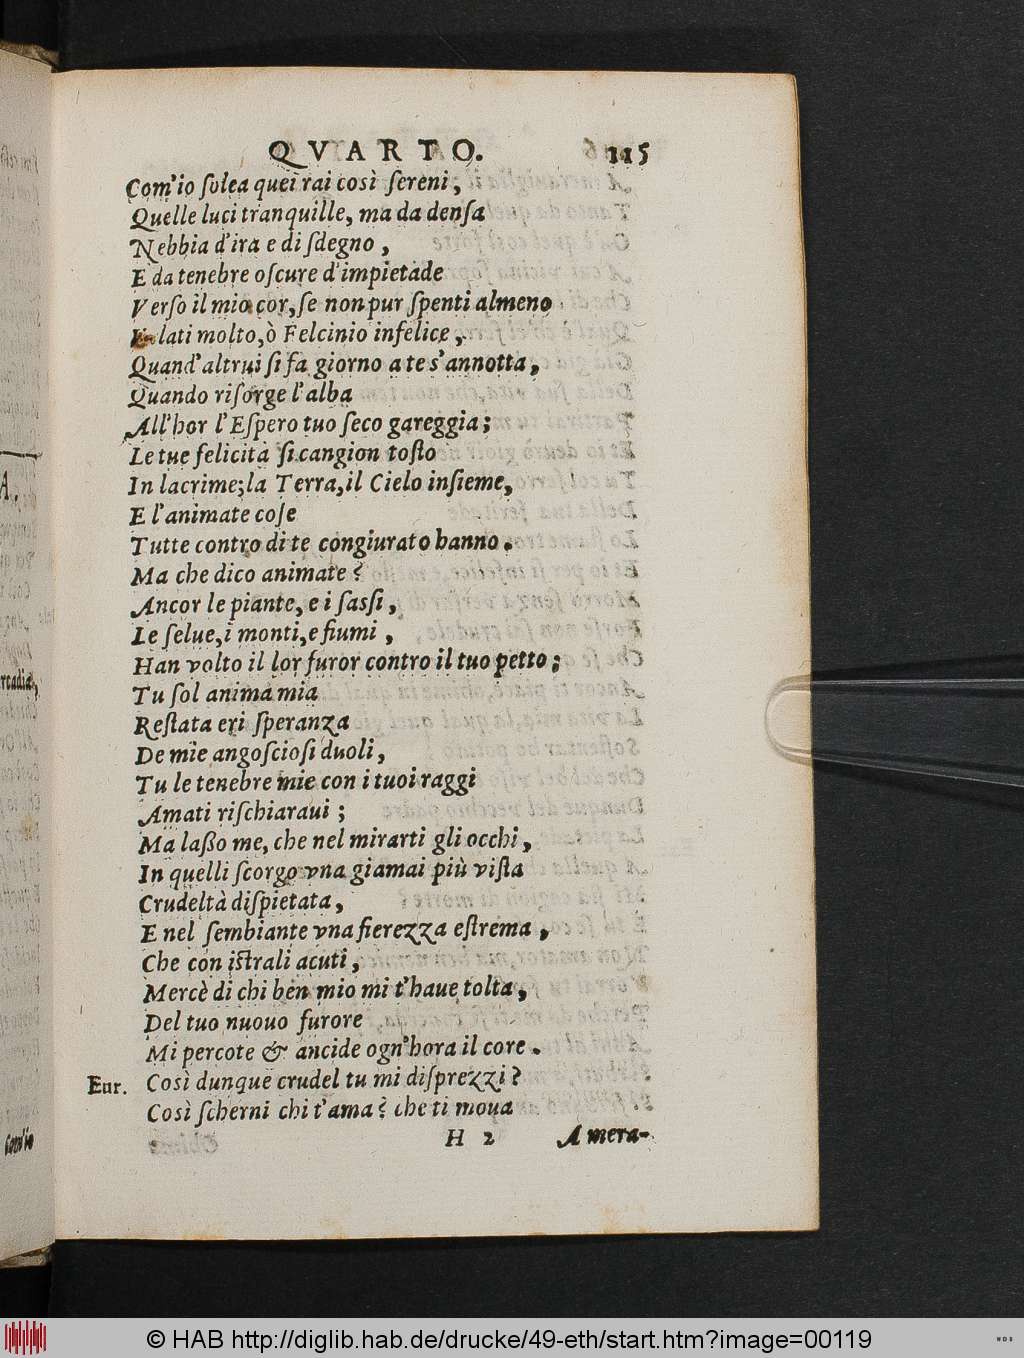 QVARTO. 115
Com'io ſolea quei rai così ſereni,
Quelle luci tranquille, ma da denſa
Nebbia d'ira e di ſdegno,
E da tenebre oſcure d'impietade
Verſo il mio cor, ſe non pur ſpenti almeno
Eclati molto, ò Felcinio infelice,
Quand'altrui ſi fa giorno a te s'annotta,
Quando riſorge l'alba
All'hor l'Eſpero tuo ſeco gareggia;
Le tue felicità ſi cangion toſto
In lacrime; la Terra, il Cielo inſieme,
E l'animate coſe
Tutte contro di te congiurato hanno.
Ma che dico animate?
Ancor le piante, e i ſaſſi,
Le ſelue, i monti, e fiumi,
Han volto il lor furor contro il tuo petto;
Tu ſol anima mia
Reſtata eri ſperanza
De mie angoſcioſi duoli,
Tu le tenebre mie con i tuoi raggi
Amati riſchiaraui;
Ma laßo me, che nel mirarti gli occhi,
In quelli ſcorgo vna giamai più viſta
Crudeltà diſpietata,
E nel ſembiante vna fierezza eſtrema,
Che con iſtrali acuti,
Mercè di chi ben mio mi t'haue tolta,
Del tuo nuouo furore
Mi percote & ancide ogn'hora il core.
Eur. Così dunque crudel tu mi diſprezzi?
Così ſcherni chi t'ama? che ti moua
H 2 A mera-
A.
rcadia,
© HAB http://diglib.hab.de/drucke/49-eth/start.htm?image=00119